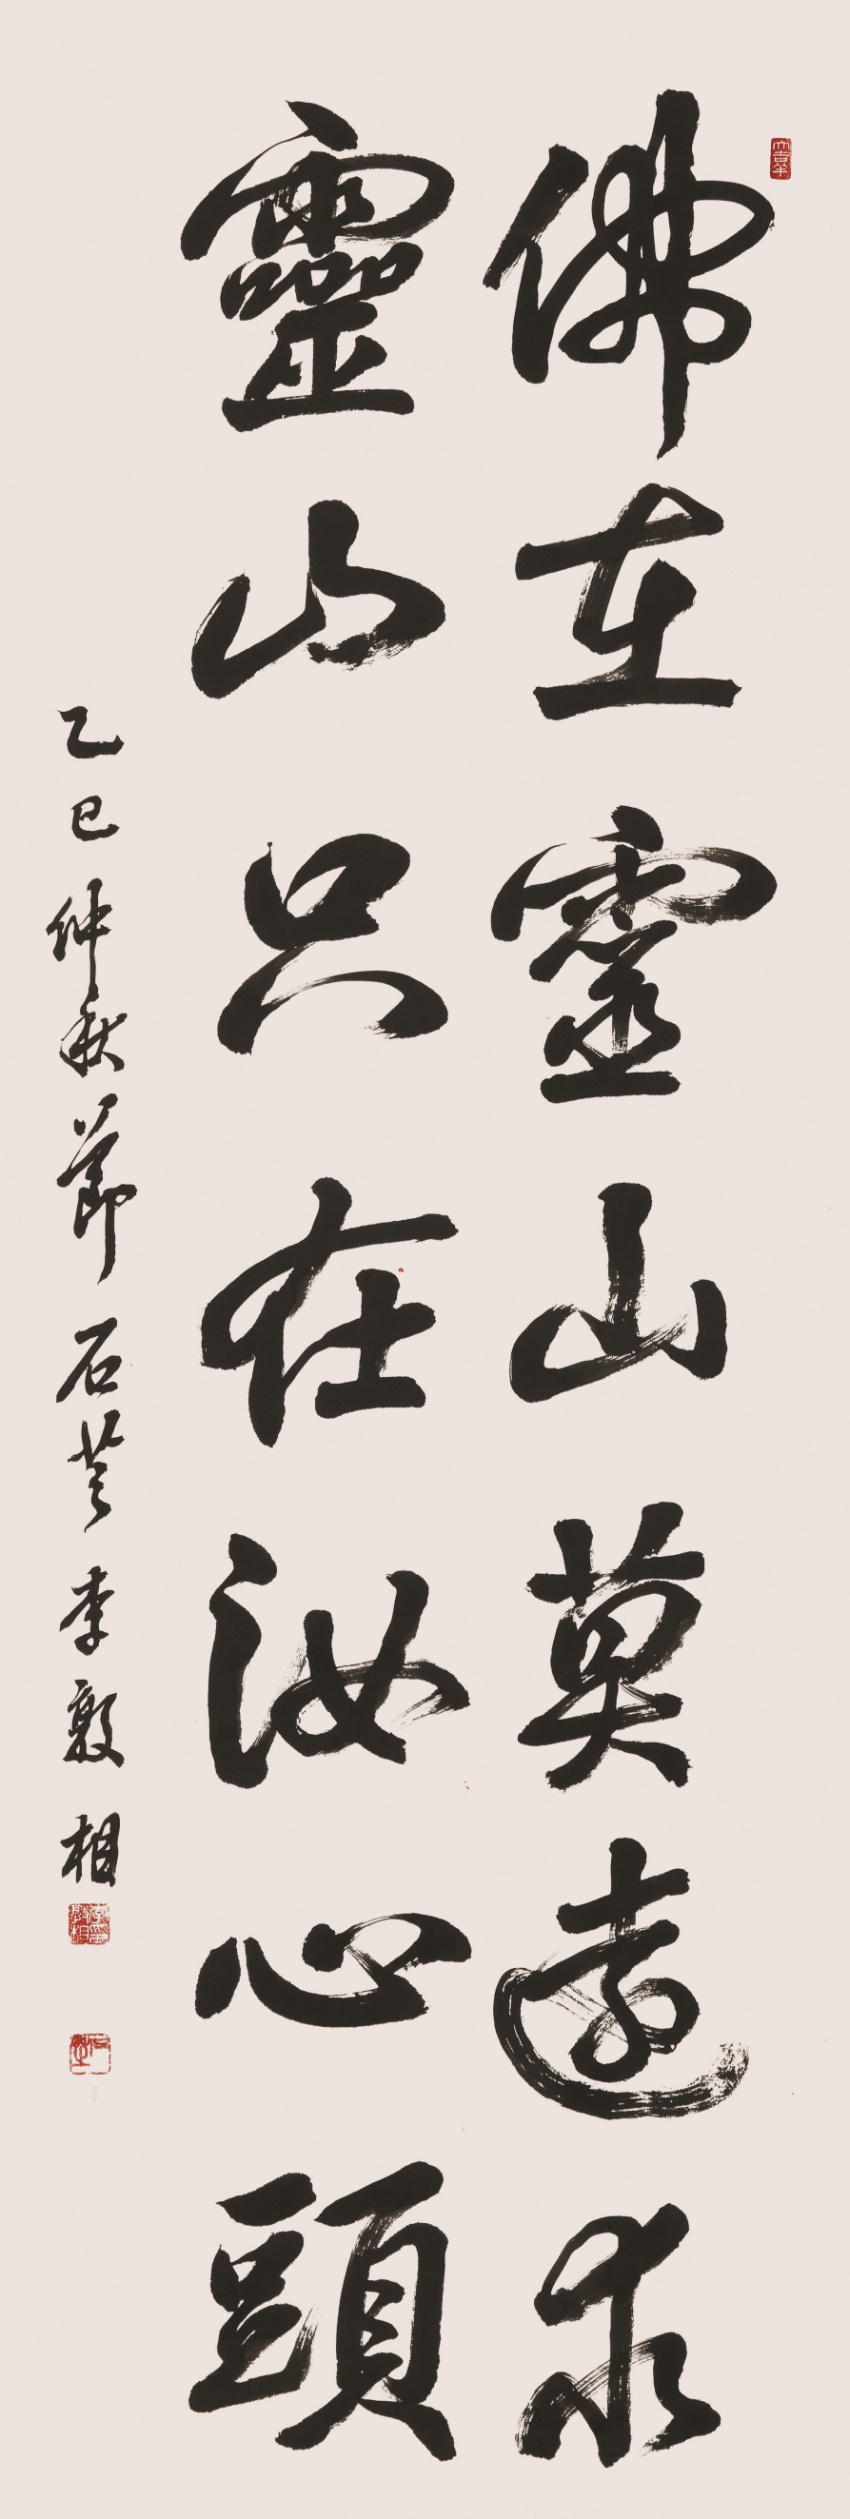 佛在靈山莫遠求
靈山只在汝心頭
乙巳仲秋節 石芸 李殷相